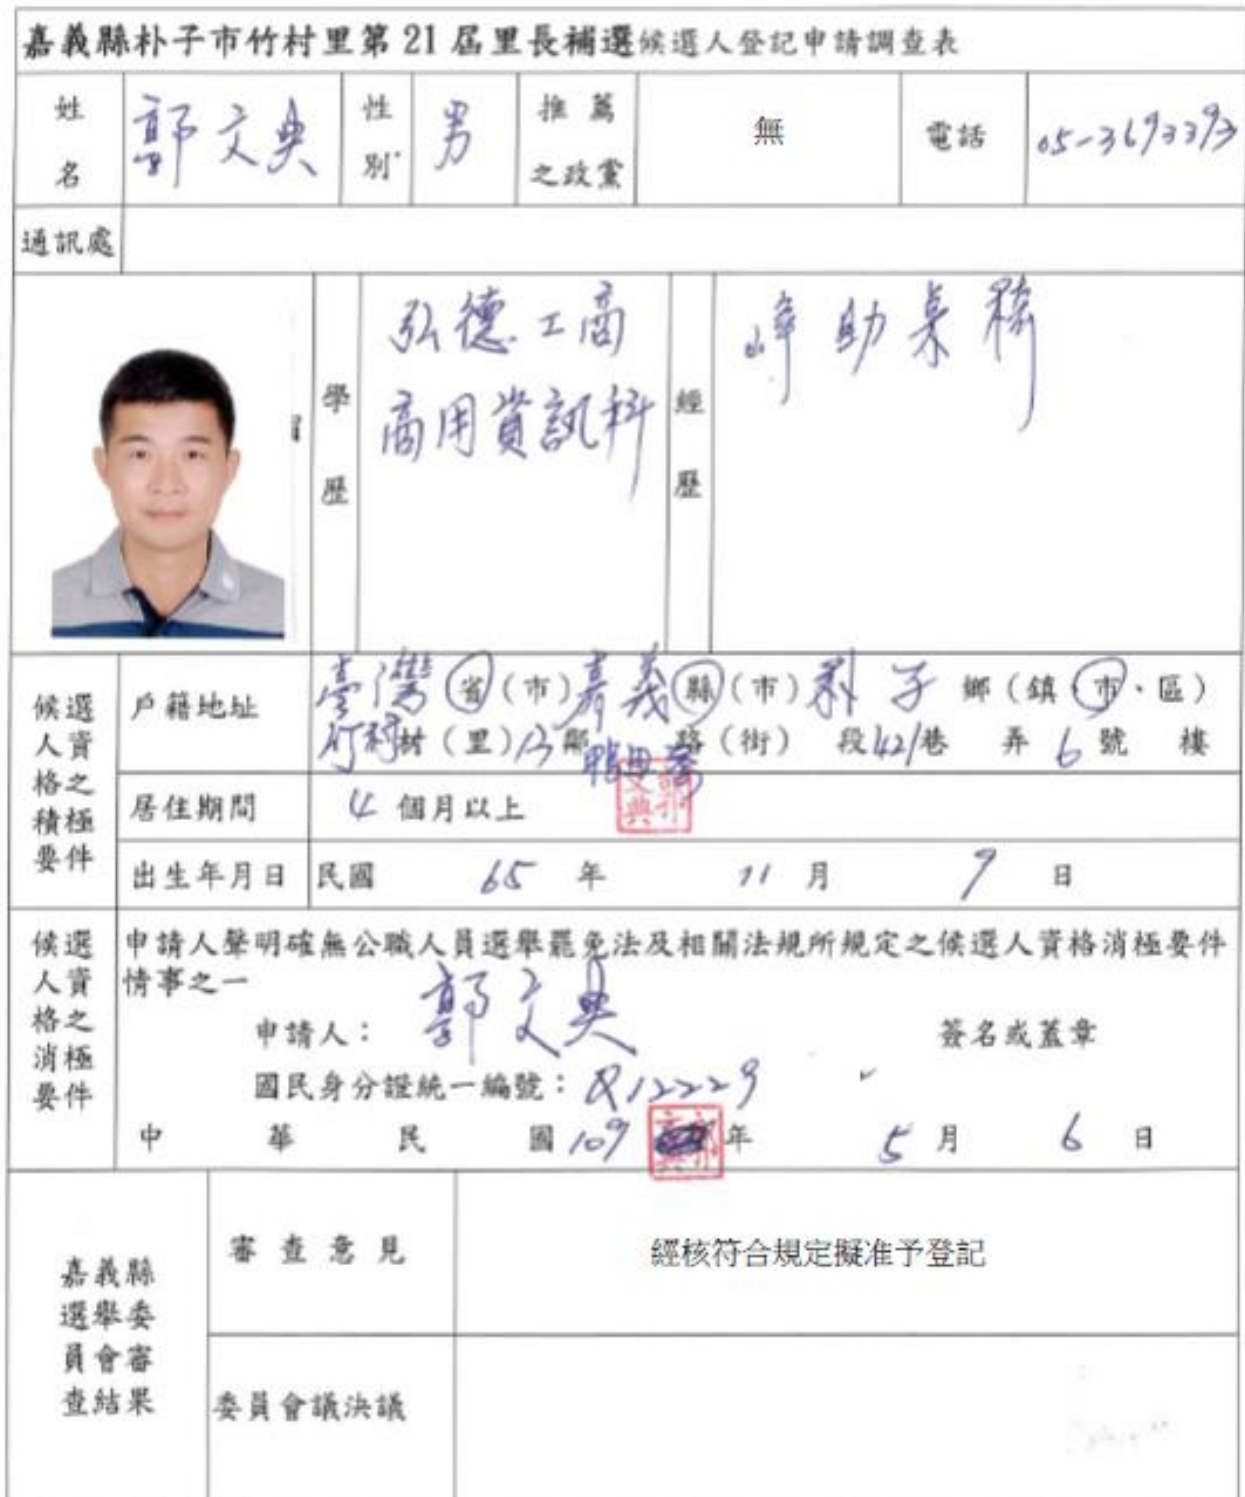 嘉義縣朴子市竹村里第21屆里長補選候選人登記申請調查表
姓名 郭文典 性別 男 推薦之政黨 無 電話 05-3693393
通訊處
學歷 弘德工商
商用資訊科
經歷 峰助桌椅
候選人資格之積極要件
戶籍地址 臺灣省(市)嘉義縣(市)朴子鄉(鎮、市、區)
竹村村(里)13鄰鴨母寮路(街) 段421巷 弄6號 樓
居住期間 4個月以上
郭文典
出生年月日 民國 65 年 11 月 9 日
候選人資格之消極要件
申請人聲明確無公職人員選舉罷免法及相關法規所規定之候選人資格消極要件
情事之一
申請人: 郭文典 簽名或蓋章
國民身分證統一編號: Q12229
中華民國 109 年 5 月 6 日
嘉義縣選舉委員會審查結果
審查意見 經核符合規定擬准予登記
委員會議決議